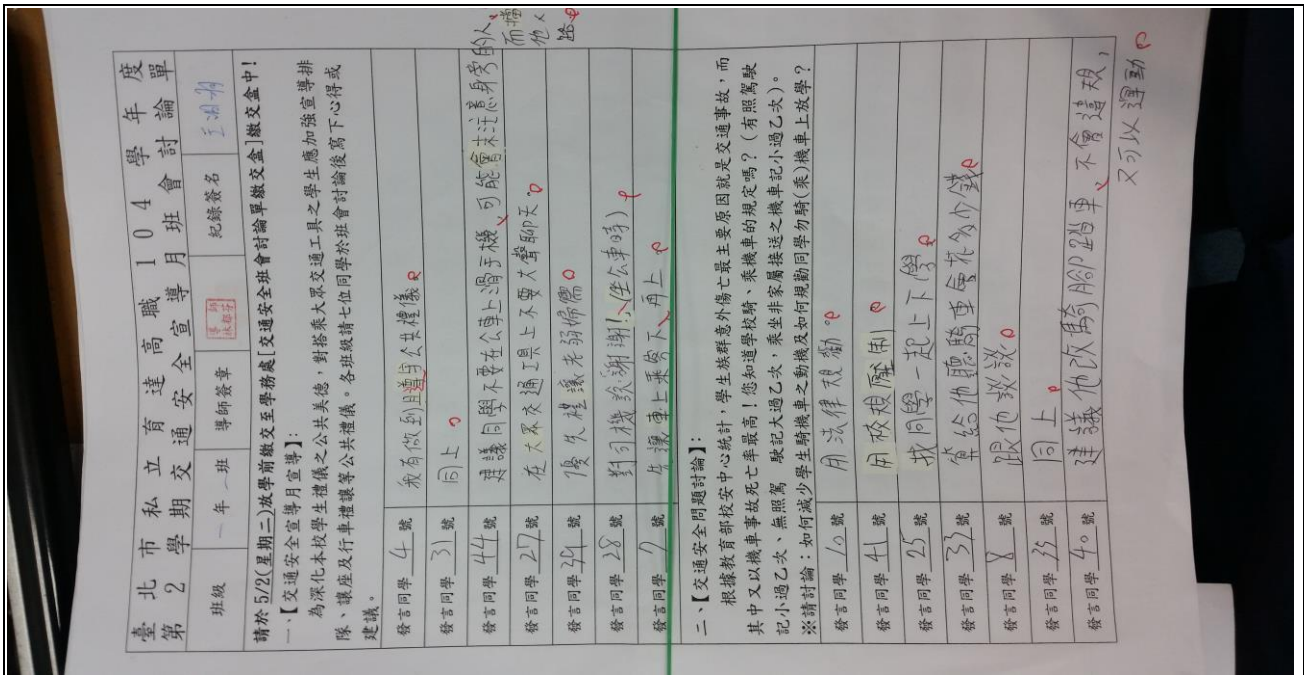 臺北市私立育達高職104學年度
第2學期交通安全宣導月班會討論單
班級 一年 班 導師簽章 紀錄簽名
請於5/2(星期二)放學前繳交至學務處[交通安全班會討論單繳交盒]繳交盒中!
一、【交通安全宣導月宣導】:
為深化本校學生禮儀之公共美德,對搭乘大眾交通工具之學生應加強宣導排
隊、讓座及行車禮讓等公共禮儀。各班級請七位同學於班會討論後寫下心得或
建議。
發言同學 4 號 我有做到且遵守公共禮儀
發言同學 31 號 同上
發言同學 44 號 建議同學不要在公車上滑手機、可能會未注意身旁的人、
而擋
他人
路
發言同學 27 號 在大眾交通工具上不要大聲聊天。
發言同學 34 號 優先禮讓老弱婦孺
發言同學 28 號 對司機說謝謝!(坐公車時)
發言同學 7 號 先讓車上乘客下、再上
二、【交通安全問題討論】:
根據教育部校安中心統計,學生族群意外傷亡最主要原因就是交通事故,而
其中又以機車事故死亡率最高!您知道學校騎、乘機車的規定嗎?(有照駕駛
記小過乙次、無照駕 駛記大過乙次,乘坐非家屬接送之機車記小過乙次)。
※請討論:如何減少學生騎機車之動機及如何規勸同學勿騎(乘)機車上放學?
發言同學 10 號 用法律規勸。
發言同學 41 號 用校規壓制
發言同學 25 號 找同學一起上下學
發言同學 37 號 算給他聽騎車會花多少錢
發言同學 8 號 跟他談談
發言同學 33 號 同上
發言同學 40 號 建議他改騎腳踏車、不會違規,
又可以運動